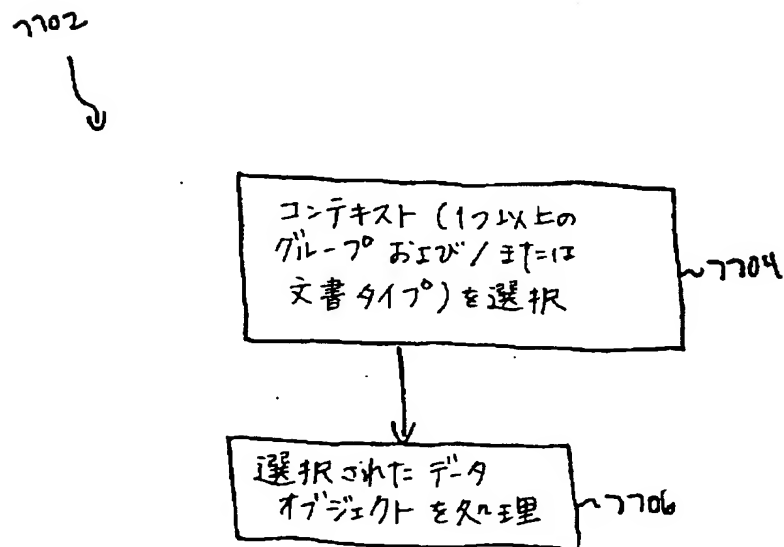 7702
コンテキスト (1つ以上の
グループ および / または
文書タイプ) を選択
7704
選択された データ
オブジェクト を処理
7706